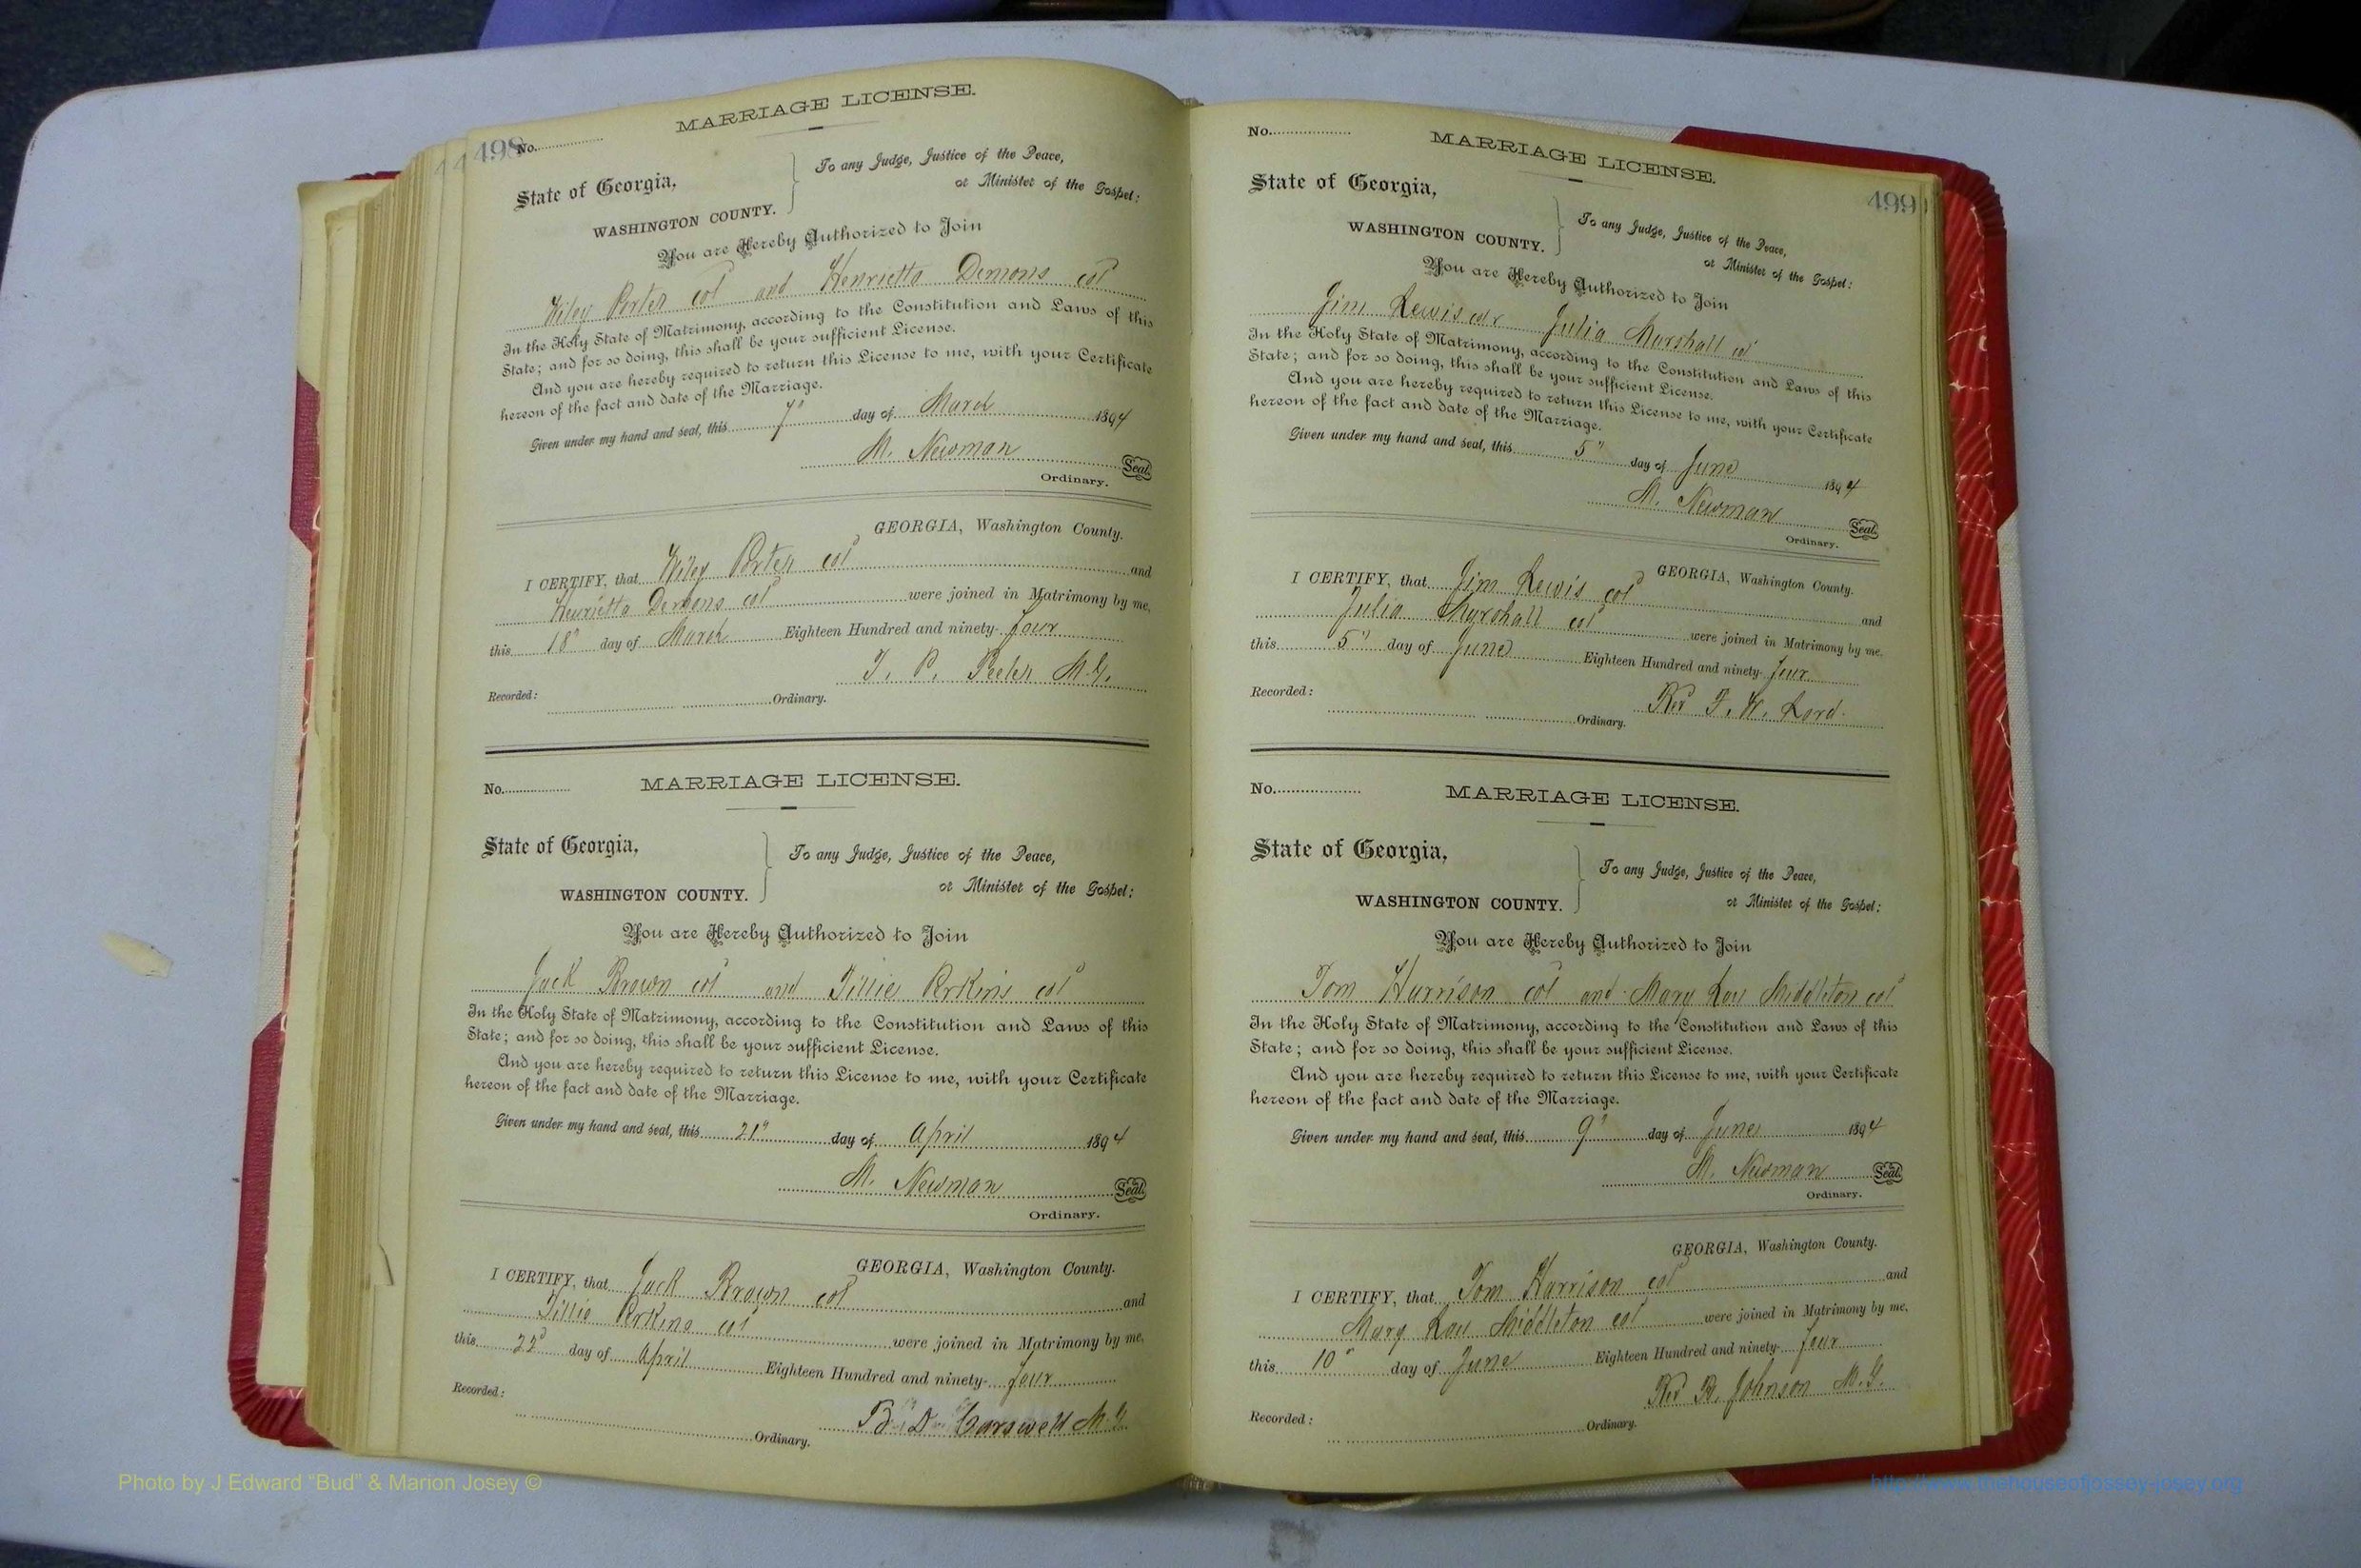 498
No.
MARRIAGE LICENSE.
State of Georgia,
WASHINGTON COUNTY.
To any Judge, Justice of the Peace,
or Minister of the Gospel:
You are Hereby Authorized to Join
Wiley Porter col and Henrietta Demons col
In the Holy State of Matrimony, according to the Constitution and Laws of this
State; and for so doing, this shall be your sufficient License.
And you are hereby required to return this License to me, with your Certificate
hereon of the fact and date of the Marriage.
Given under my hand and seal, this 7" day of March 1894
M. Newman Seal.
Ordinary.
GEORGIA, Washington County.
I CERTIFY, that Wiley Porter col and
Henrietta Demons col were joined in Matrimony by me,
this 18" day of March Eighteen Hundred and ninety-four
T. P. Peeler M.G.
Recorded: Ordinary.
No.
MARRIAGE LICENSE.
State of Georgia,
WASHINGTON COUNTY.
To any Judge, Justice of the Peace,
or Minister of the Gospel:
You are Hereby Authorized to Join
Jack Brown col and Tillie Perkins col
In the Holy State of Matrimony, according to the Constitution and Laws of this
State; and for so doing, this shall be your sufficient License.
And you are hereby required to return this License to me, with your Certificate
hereon of the fact and date of the Marriage.
Given under my hand and seal, this 21" day of April 1894
M. Newman Seal.
Ordinary.
GEORGIA, Washington County.
I CERTIFY, that Jack Brown col and
Tillie Perkins col were joined in Matrimony by me,
this 22d day of April Eighteen Hundred and ninety-four
B. D. Carswell M.G.
Recorded: Ordinary.
No.
MARRIAGE LICENSE.
499
State of Georgia,
WASHINGTON COUNTY.
To any Judge, Justice of the Peace,
or Minister of the Gospel:
You are Hereby Authorized to Join
Jim Lewis col Julia Marshall col
In the Holy State of Matrimony, according to the Constitution and Laws of this
State; and for so doing, this shall be your sufficient License.
And you are hereby required to return this License to me, with your Certificate
hereon of the fact and date of the Marriage.
Given under my hand and seal, this 5" day of June 1894
M. Newman Seal.
Ordinary.
GEORGIA, Washington County.
I CERTIFY, that Jim Lewis col and
Julia Marshall col were joined in Matrimony by me,
this 5" day of June Eighteen Hundred and ninety-four
Rev F. W. Lord
Recorded: Ordinary.
No.
MARRIAGE LICENSE.
State of Georgia,
WASHINGTON COUNTY.
To any Judge, Justice of the Peace,
or Minister of the Gospel:
You are Hereby Authorized to Join
Tom Harrison col and Mary Lou Middleton col
In the Holy State of Matrimony, according to the Constitution and Laws of this
State; and for so doing, this shall be your sufficient License.
And you are hereby required to return this License to me, with your Certificate
hereon of the fact and date of the Marriage.
Given under my hand and seal, this 9" day of June 1894
M. Newman Seal.
Ordinary.
GEORGIA, Washington County.
I CERTIFY, that Tom Harrison col and
Mary Lou Middleton col were joined in Matrimony by me,
this 10" day of June Eighteen Hundred and ninety-four
Rev R. Johnson M.G.
Recorded: Ordinary.
Photo by J Edward “Bud” & Marion Josey ©
http://www.thehouseofjossey-josey.org